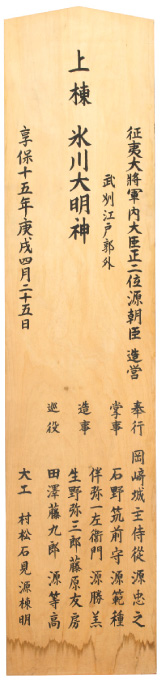 征夷大將軍內大臣正二位源朝臣 造営
武刕江戸郭外
上棟 氷川大明神
享保十五年庚戌四月二十五日
奉行 岡﨑城主侍従源忠之
掌事 石野筑前守源範種
伴弥一左衛門源勝羙
造事 生野弥三郎藤原友房
巡役 田澤藤九郎源等髙
大工 村松石見源棟明